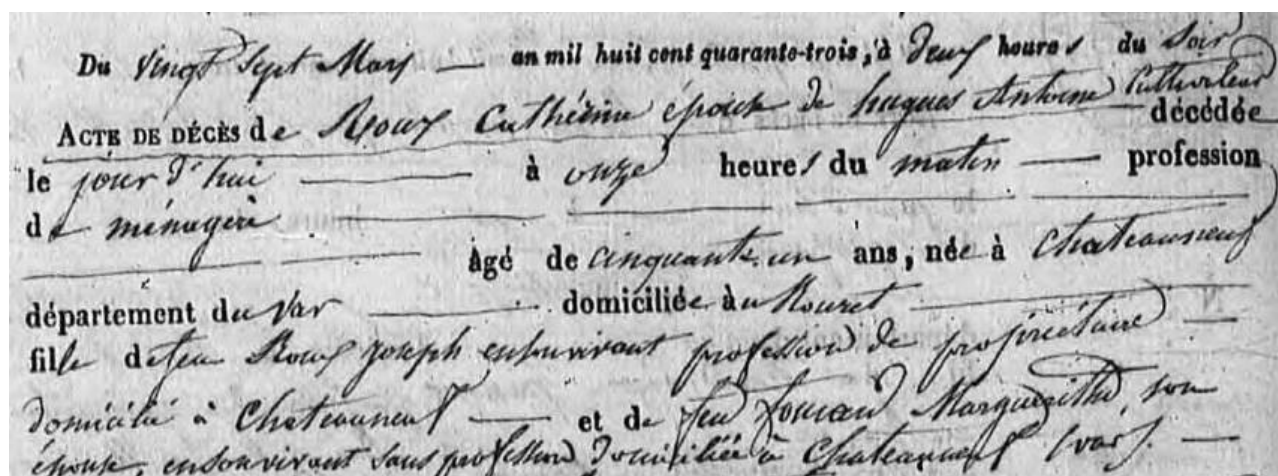 Du Vingt Sept Mars — an mil huit cent quarante-trois, à deux heures du Soir
ACTE DE DÉCÈS de Roux Cathérine épouse de hugues Antoine Cultivateur décédée
le jour d'hui — à onze heures du matin — profession
de ménagère
âgé de cinquante un ans, née à Chateauneuf
département du Var — domiciliée au Rouret —
fille de feu Roux Joseph ensonvivant profession de propriétaire —
domicilié à Chateauneuf — et de feu Marguerithe, son
épouse, ensonvivant sans profession domiciliée à Chateauneuf (var). —